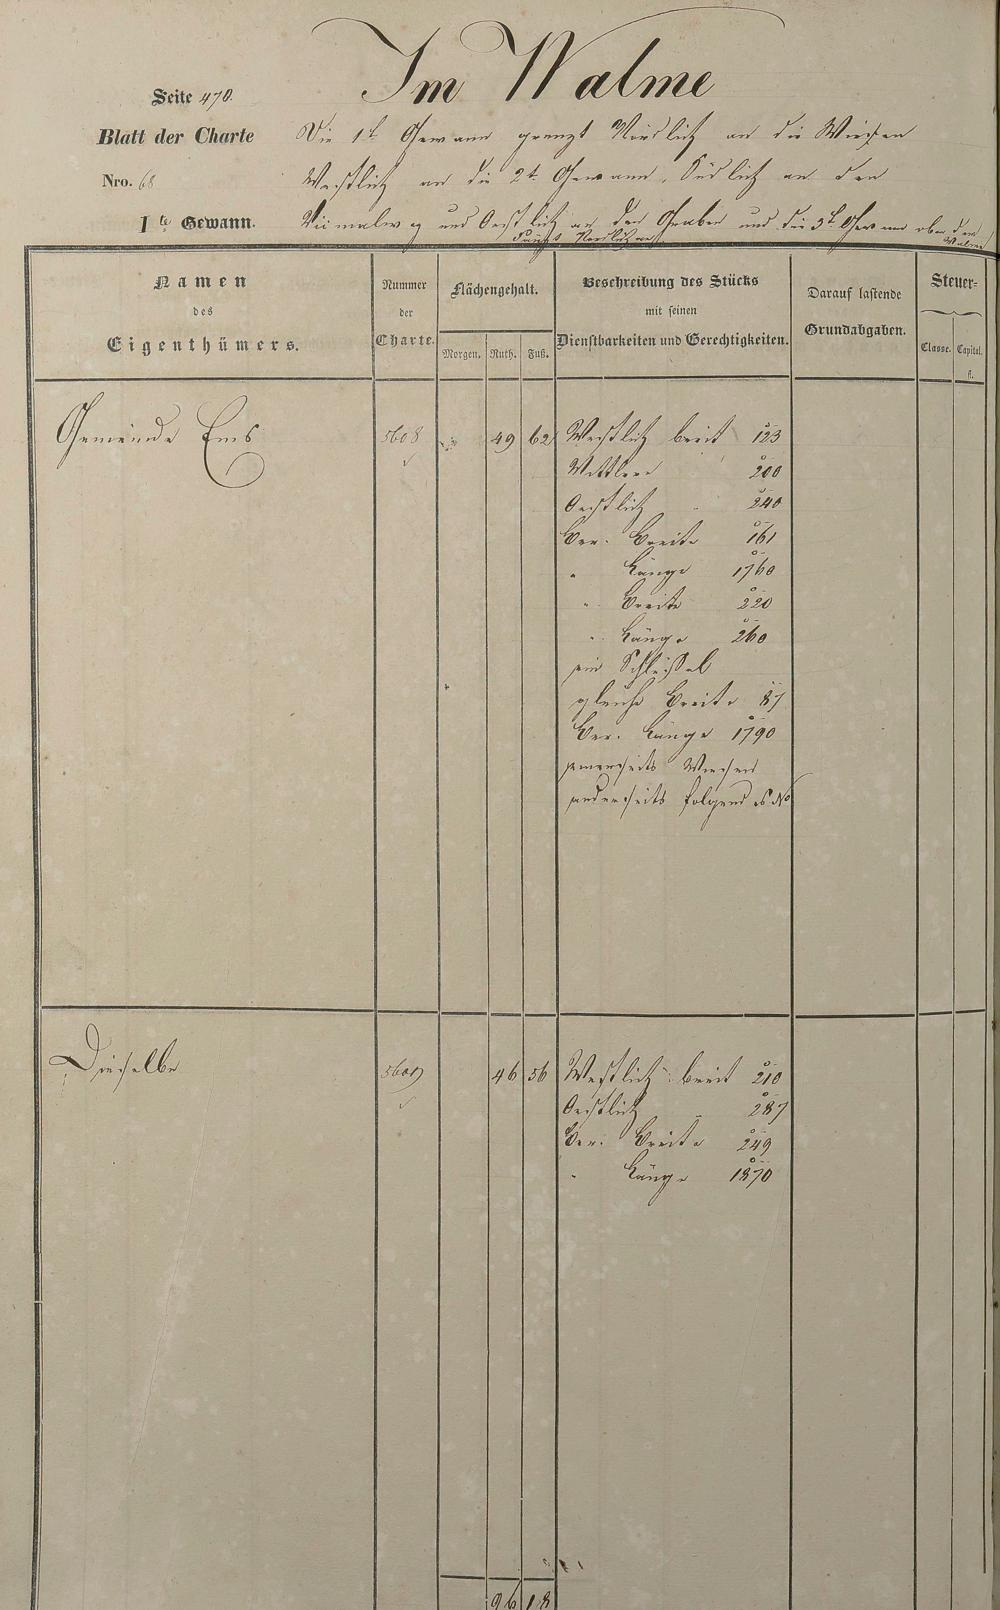 Im Walme
Seite 470.
Blatt der Charte
Nro. 68
1te Gewann.
Die 1t. Gewann grenzt Nördlich an die Wiesen
Westlich an die 2t. Gewann, Südlich an den
und Oestlich an den Graben und die 3t. Gewann ober dem
Walme
Namen
des
Eigenthümers.
Nummer
der
Charte.
Flächengehalt.
Morgen. Ruth. Fuß.
Beschreibung des Stücks
mit seinen
Dienstbarkeiten und Gerechtigkeiten.
Darauf lastende
Grundabgaben.
Steuer-
Classe. Capital.
fl.
Gemeinde Ems 5608 49 62 Westlich breit 123
Mittlere 200
Oestlich 240
Ver. Breite 161
" Länge 1760
" Breite 220
" Länge 260
ein Schlüssel
gleiche Breite 87
Ver. Länge 1790
einerseits Wiesen
anderseits folgendes No
Dieselbe 5609 46 56 Westlich breit 210
Oestlich " 287
Ver. Breite 249
" Länge 1870
96 18